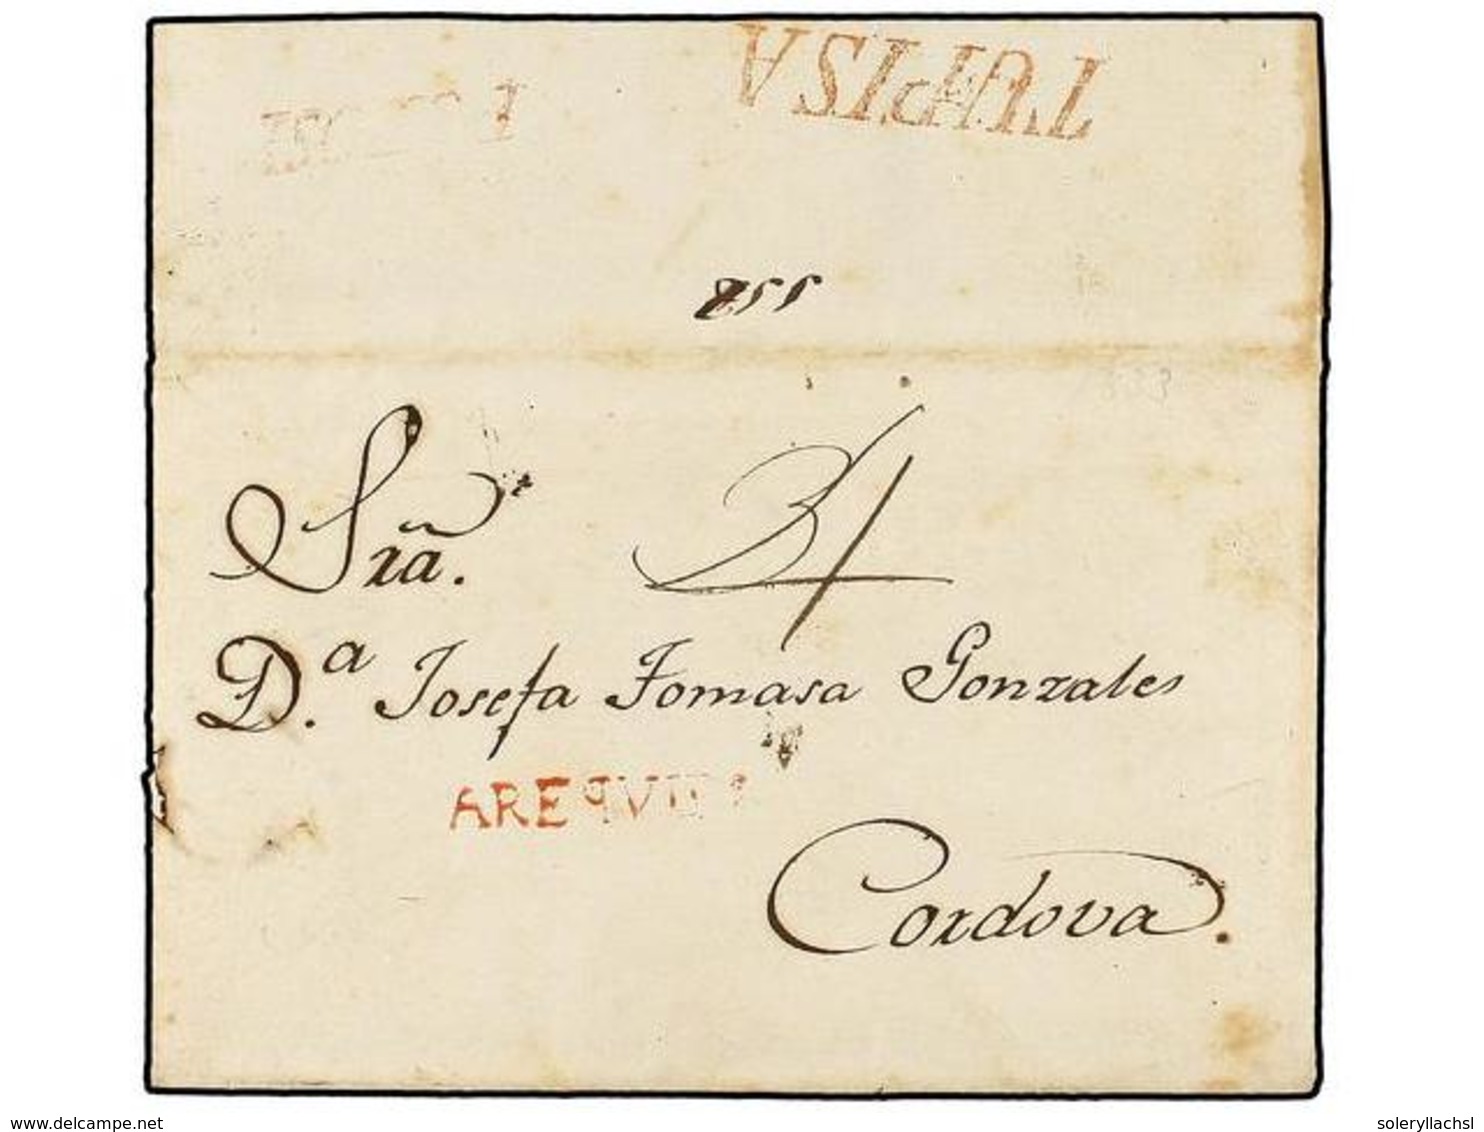 TUPISA
Srã.
D.ª Josefa Tomasa Gonzales
AREQUIPA
Cordova.
delcampe.net
soleryllachsl